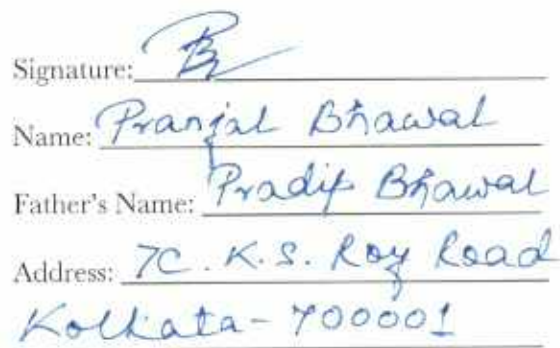 Signature:
Name: Pranjal Bhawal
Father's Name: Pradip Bhawal
Address: 7C. K.S. Roy Road
Kolkata - 700001